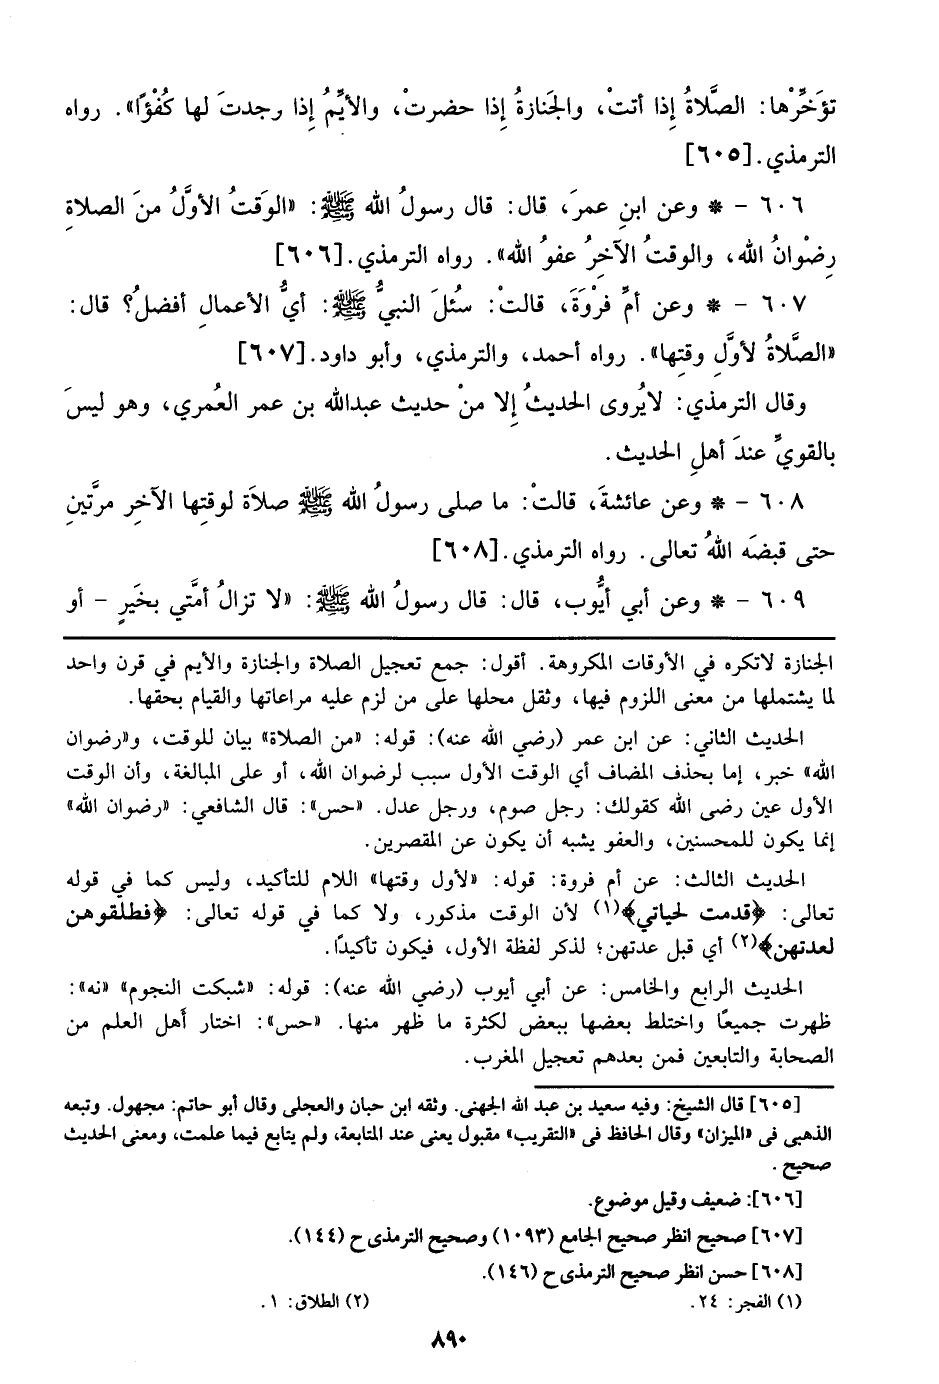 تؤَخِّرْها: الصَّلاةُ إِذا أتتْ، والجَنازةُ إِذا حضرتْ، والأيِّمُ إِذا وجدتَ لها كُفْؤًا». رواه
الترمذي. [٦٠٥]
٦٠٦ - * وعن ابنِ عمرَ، قال: قال رسولُ الله ﷺ: «الوَقتُ الأوَّلُ منَ الصلاةِ
رِضْوانُ الله، والوقتُ الآخِرُ عفوُ الله». رواه الترمذي. [٦٠٦]
٦٠٧ - * وعن أمِّ فرْوَةَ، قالتْ: سُئلَ النبيُّ ﷺ: أيُّ الأعمالِ أفضلُ؟ قال:
«الصَّلاةُ لأوَّلِ وقتِها». رواه أحمد، والترمذي، وأبو داود. [٦٠٧]
وقال الترمذي: لايُروى الحديثُ إلا منْ حديث عبدالله بن عمر العُمري، وهو ليسَ
بالقويِّ عندَ أهلِ الحديث.
٦٠٨ - * وعن عائشةَ، قالتْ: ما صلى رسولُ الله ﷺ صلاَة لوقتِها الآخِر مرَّتينِ
حتى قبضَه اللهُ تعالى. رواه الترمذي. [٦٠٨]
٦٠٩ - * وعن أبي أيُّوب، قال: قال رسولُ الله ﷺ: «لا تزالُ أمَّتي بخَيرٍ - أو
الجنازة لاتكره في الأوقات المكروهة. أقول: جمع تعجيل الصلاة والجنازة والأيم في قرن واحد
لما يشتملها من معنى اللزوم فيها، وثقل محلها على من لزم عليه مراعاتها والقيام بحقها.
الحديث الثاني: عن ابن عمر (رضي الله عنه): قوله: «من الصلاة» بيان للوقت، و«رضوان
الله» خبر، إما بحذف المضاف أي الوقت الأول سبب لرضوان الله، أو على المبالغة، وأن الوقت
الأول عين رضى الله كقولك: رجل صوم، ورجل عدل. «حس»: قال الشافعي: «رضوان الله»
إنما يكون للمحسنين، والعفو يشبه أن يكون عن المقصرين.
الحديث الثالث: عن أم فروة: قوله: «لأول وقتها» اللام للتأكيد، وليس كما في قوله
تعالى: ﴿قدمت لحياتي﴾(١) لأن الوقت مذكور، ولا كما في قوله تعالى: ﴿فطلقوهن
لعدتهن﴾(٢) أي قبل عدتهن؛ لذكر لفظة الأول، فيكون تأكيدًا.
الحديث الرابع والخامس: عن أبي أيوب (رضي الله عنه): قوله: «شبكت النجوم» «نه»:
ظهرت جميعًا واختلط بعضها ببعض لكثرة ما ظهر منها. «حس»: اختار أهل العلم من
الصحابة والتابعين فمن بعدهم تعجيل المغرب.
[٦٠٥] قال الشيخ: وفيه سعيد بن عبد الله الجهنى. وثقه ابن حبان والعجلى وقال أبو حاتم: مجهول. وتبعه
الذهبى فى «الميزان» وقال الحافظ فى «التقريب» مقبول يعنى عند المتابعة، ولم يتابع فيما علمت، ومعنى الحديث
صحيح.
[٦٠٦]: ضعيف وقيل موضوع.
[٦٠٧] صحيح انظر صحيح الجامع (١٠٩٣) وصحيح الترمذى ح (١٤٤).
[٦٠٨] حسن انظر صحيح الترمذى ح (١٤٦).
(١) الفجر: ٢٤. (٢) الطلاق: ١.
٨٩٠